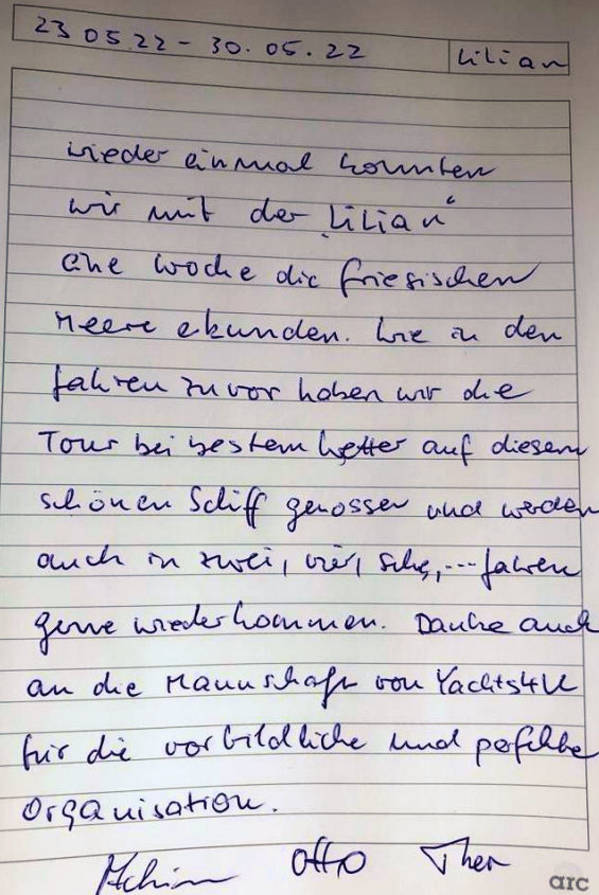 23 05 22 - 30. 05. 22
Lilian
wieder einmal konnten
wir mit der „Lilian“
eine Woche die friesischen
Meere ekunden. Wie in den
Jahren zuvor haben wir die
Tour bei bestem Wetter auf diesem
schönen Schiff genossen und werden
auch in zwei, vier, sechs, ... Jahren
gerne wiederkommen. Danke auch
an die Mannschaft von Yachts4U
für die vorbildliche und perfekte
Organisation.
Achim Otto
arc